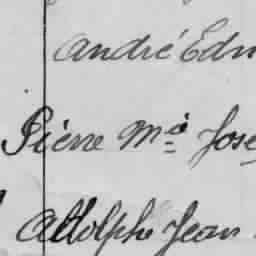 André Edm
Pierre Mie Jose
Adolphe Jean